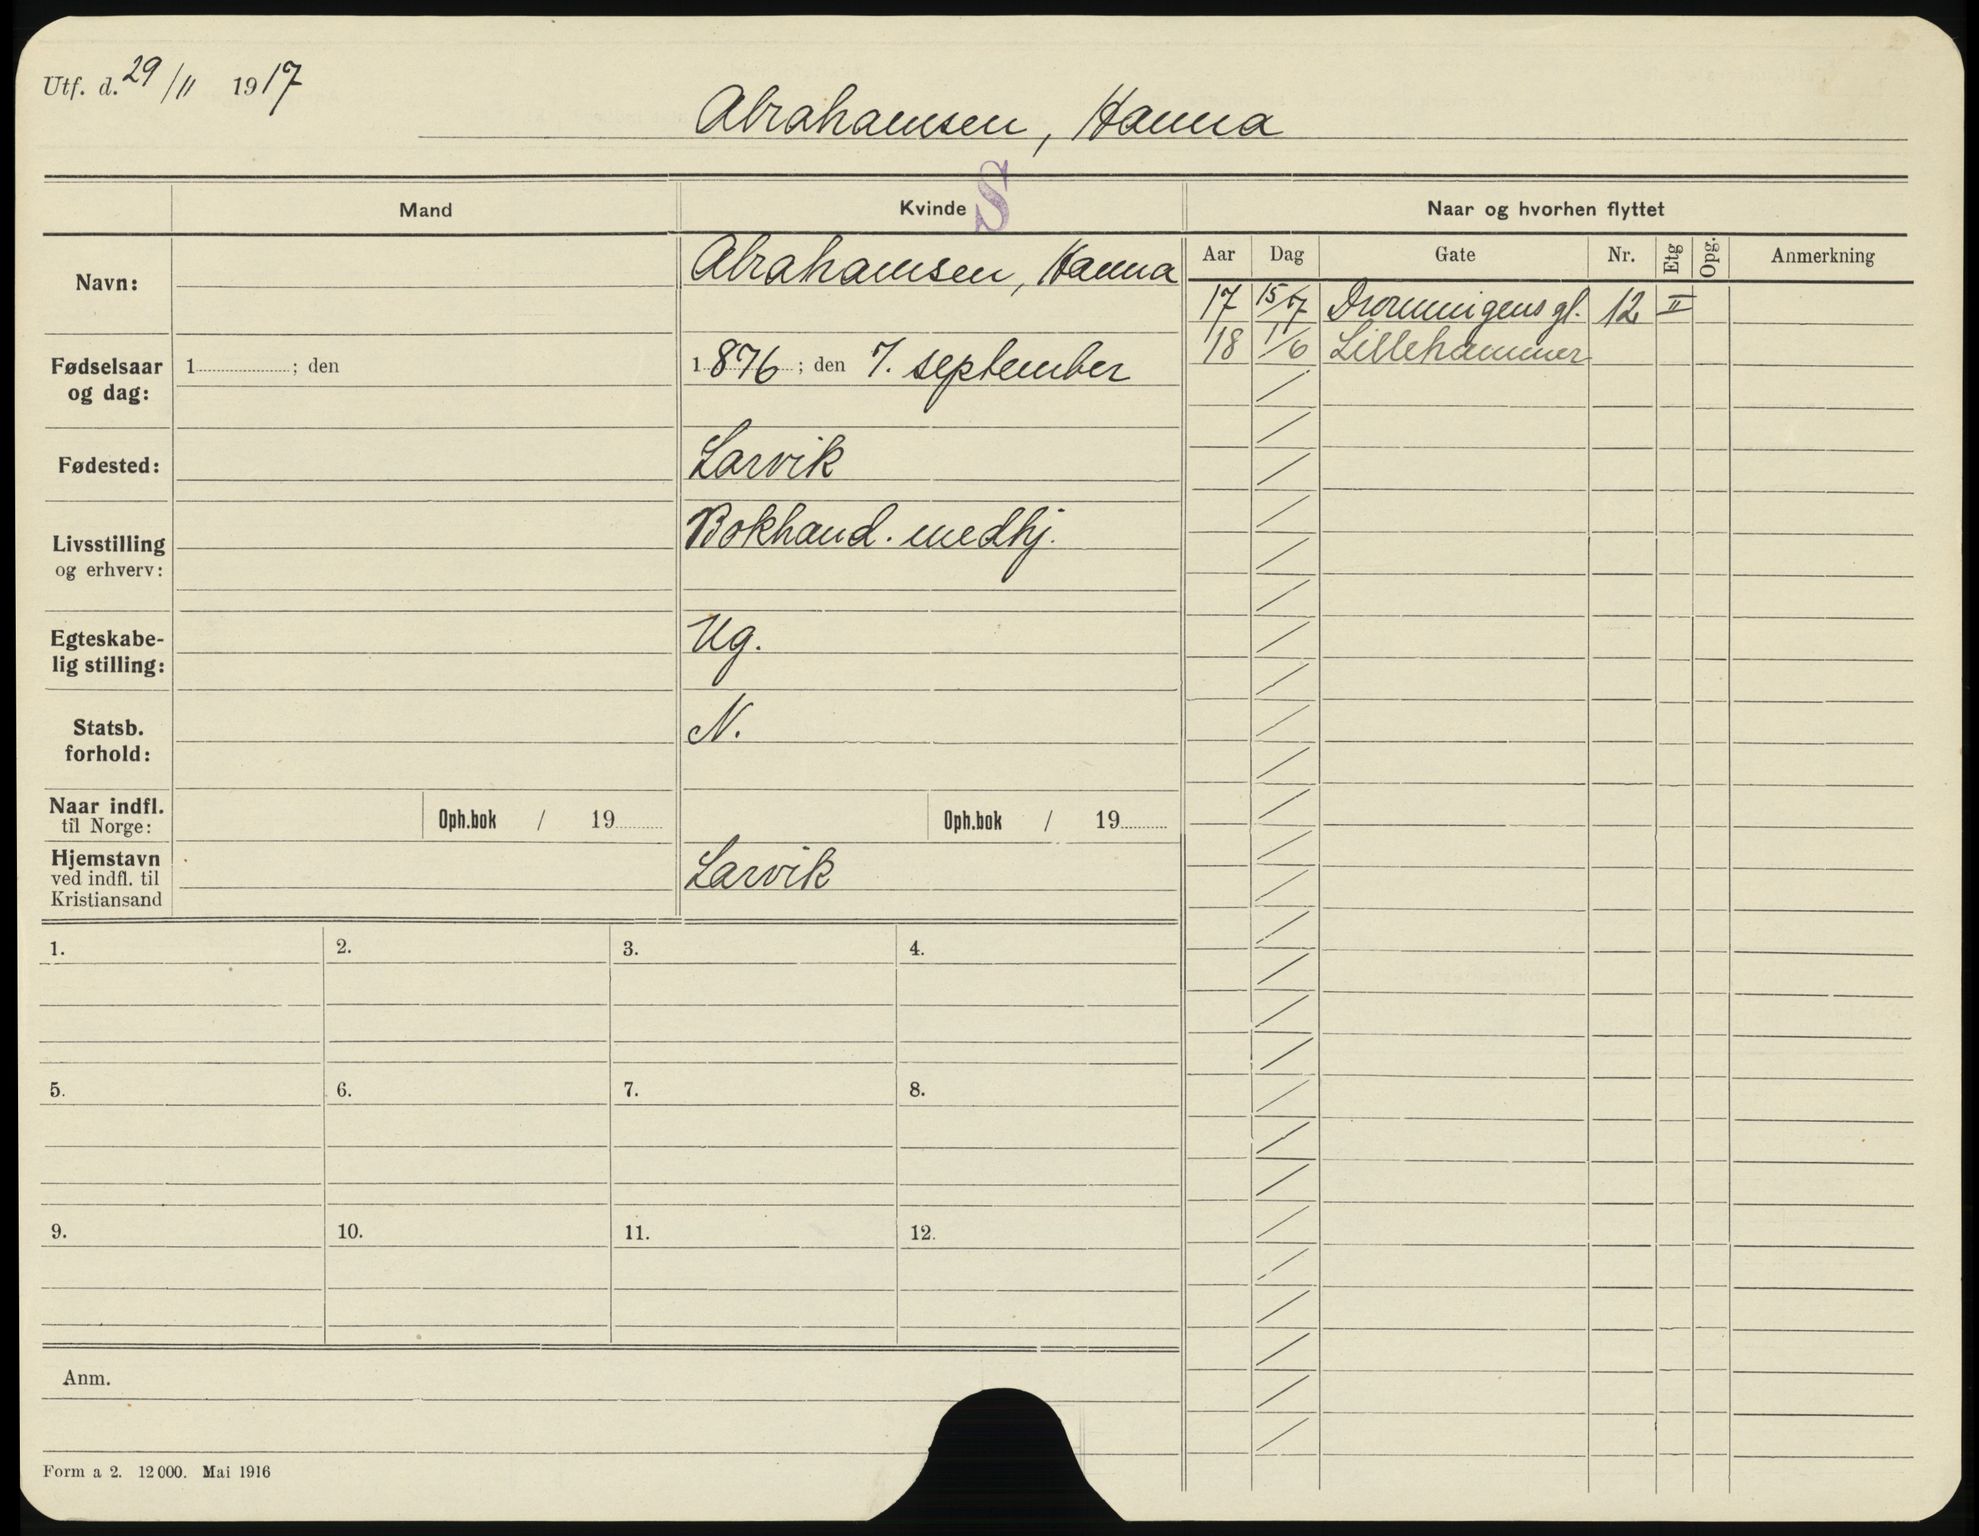 Utf. d. 29/11 1917
Abrahamsen, Hanna
S
Mand Kvinde Naar og hvorhen flyttet
Aar Dag Gate Nr. Etg Opg. Anmerkning
Navn: Abrahamsen, Hanna
17 15/7 Dronningens gt. 12 II
18 1/6 Lillehammer
Fødselsaar og dag: 1 ; den 1876 ; den 7. september
Fødested: Larvik
Livsstilling og erhverv: Bokhand. medhj.
Egteskabe-
lig stilling: Ug.
Statsb. forhold: N.
Naar indfl. til Norge: Oph.bok / 19 Oph.bok / 19
Hjemstavn
ved indfl. til
Kristiansand Larvik
1. 2. 3. 4.
5. 6. 7. 8.
9. 10. 11. 12.
Anm.
Form a 2. 12000. Mai 1916